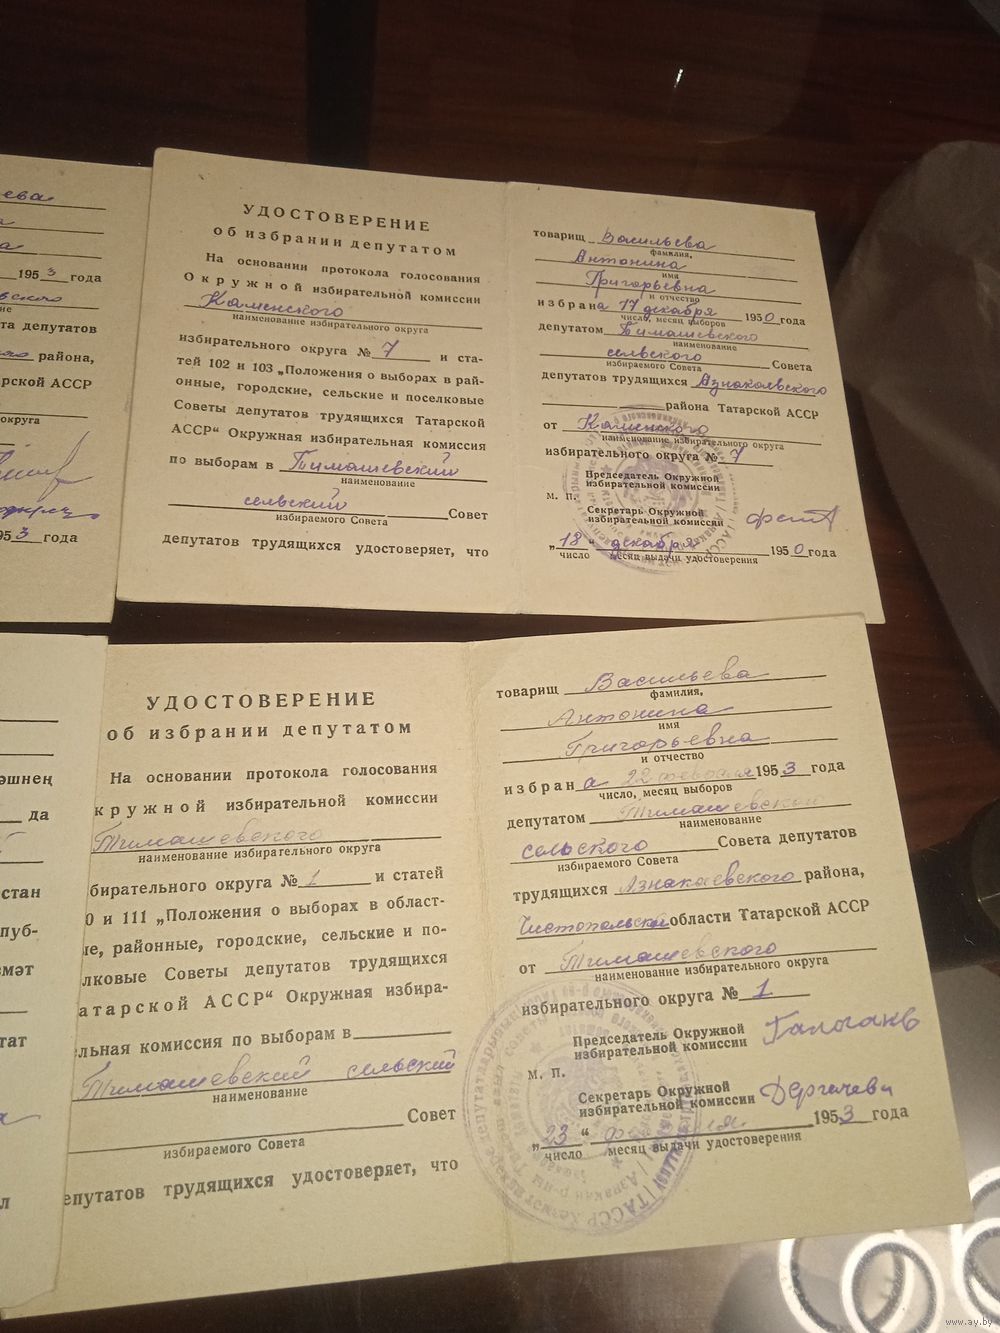 ева
а
а
1953 года
вского
та депутатов
района,
арской АССР
округа
53 года
УДОСТОВЕРЕНИЕ
об избрании депутатом
На основании протокола голосования
Окружной избирательной комиссии
Каменского
наименование избирательного округа
избирательного округа № 7 и ста-
тей 102 и 103 „Положения о выборах в рай-
онные, городские, сельские и поселковые
Советы депутатов трудящихся Татарской
АССР“ Окружная избирательная комиссия
по выборам в Тимашевский
наименование
сельский Совет
избираемого Совета
депутатов трудящихся удостоверяет, что
товарищ Васильева
фамилия,
Антонина
имя
Григорьевна
и отчество
избрана 17 декабря 1950 года
число, месяц выборов
депутатом Тимашевского
наименование
сельского Совета
избираемого Совета
депутатов трудящихся Азнакаевского
района Татарской АССР
от Каменского
наименование избирательного округа
избирательного округа № 7
Председатель Окружной
избирательной комиссии
М. П.
Секретарь Окружной
избирательной комиссии
„18“ декабря 1950 года
число месяц выдачи удостоверения
әшнең
да
стан
пуб-
мәт
тат
л
УДОСТОВЕРЕНИЕ
об избрании депутатом
На основании протокола голосования
кружной избирательной комиссии
Тимашевского
наименование избирательного округа
бирательного округа № 1 и статей
0 и 111 „Положения о выборах в област-
ые, районные, городские, сельские и по-
лковые Советы депутатов трудящихся
атарской АССР“ Окружная избира-
льная комиссия по выборам в
Тимашевский сельский
наименование
Совет
избираемого Совета
епутатов трудящихся удостоверяет, что
товарищ Васильева
фамилия,
Антонина
имя
Григорьевна
и отчество
избрана 22 февраля 1953 года
число, месяц выборов
депутатом Тимашевского
наименование
сельского Совета депутатов
избираемого Совета
трудящихся Азнакаевского района,
Чистопольской области Татарской АССР
от Тимашевского
наименование избирательного округа
избирательного округа № 1
Председатель Окружной
избирательной комиссии
М. П.
Секретарь Окружной
избирательной комиссии
„23“ февраля 1953 года
число месяц выдачи удостоверения
www.ay.by